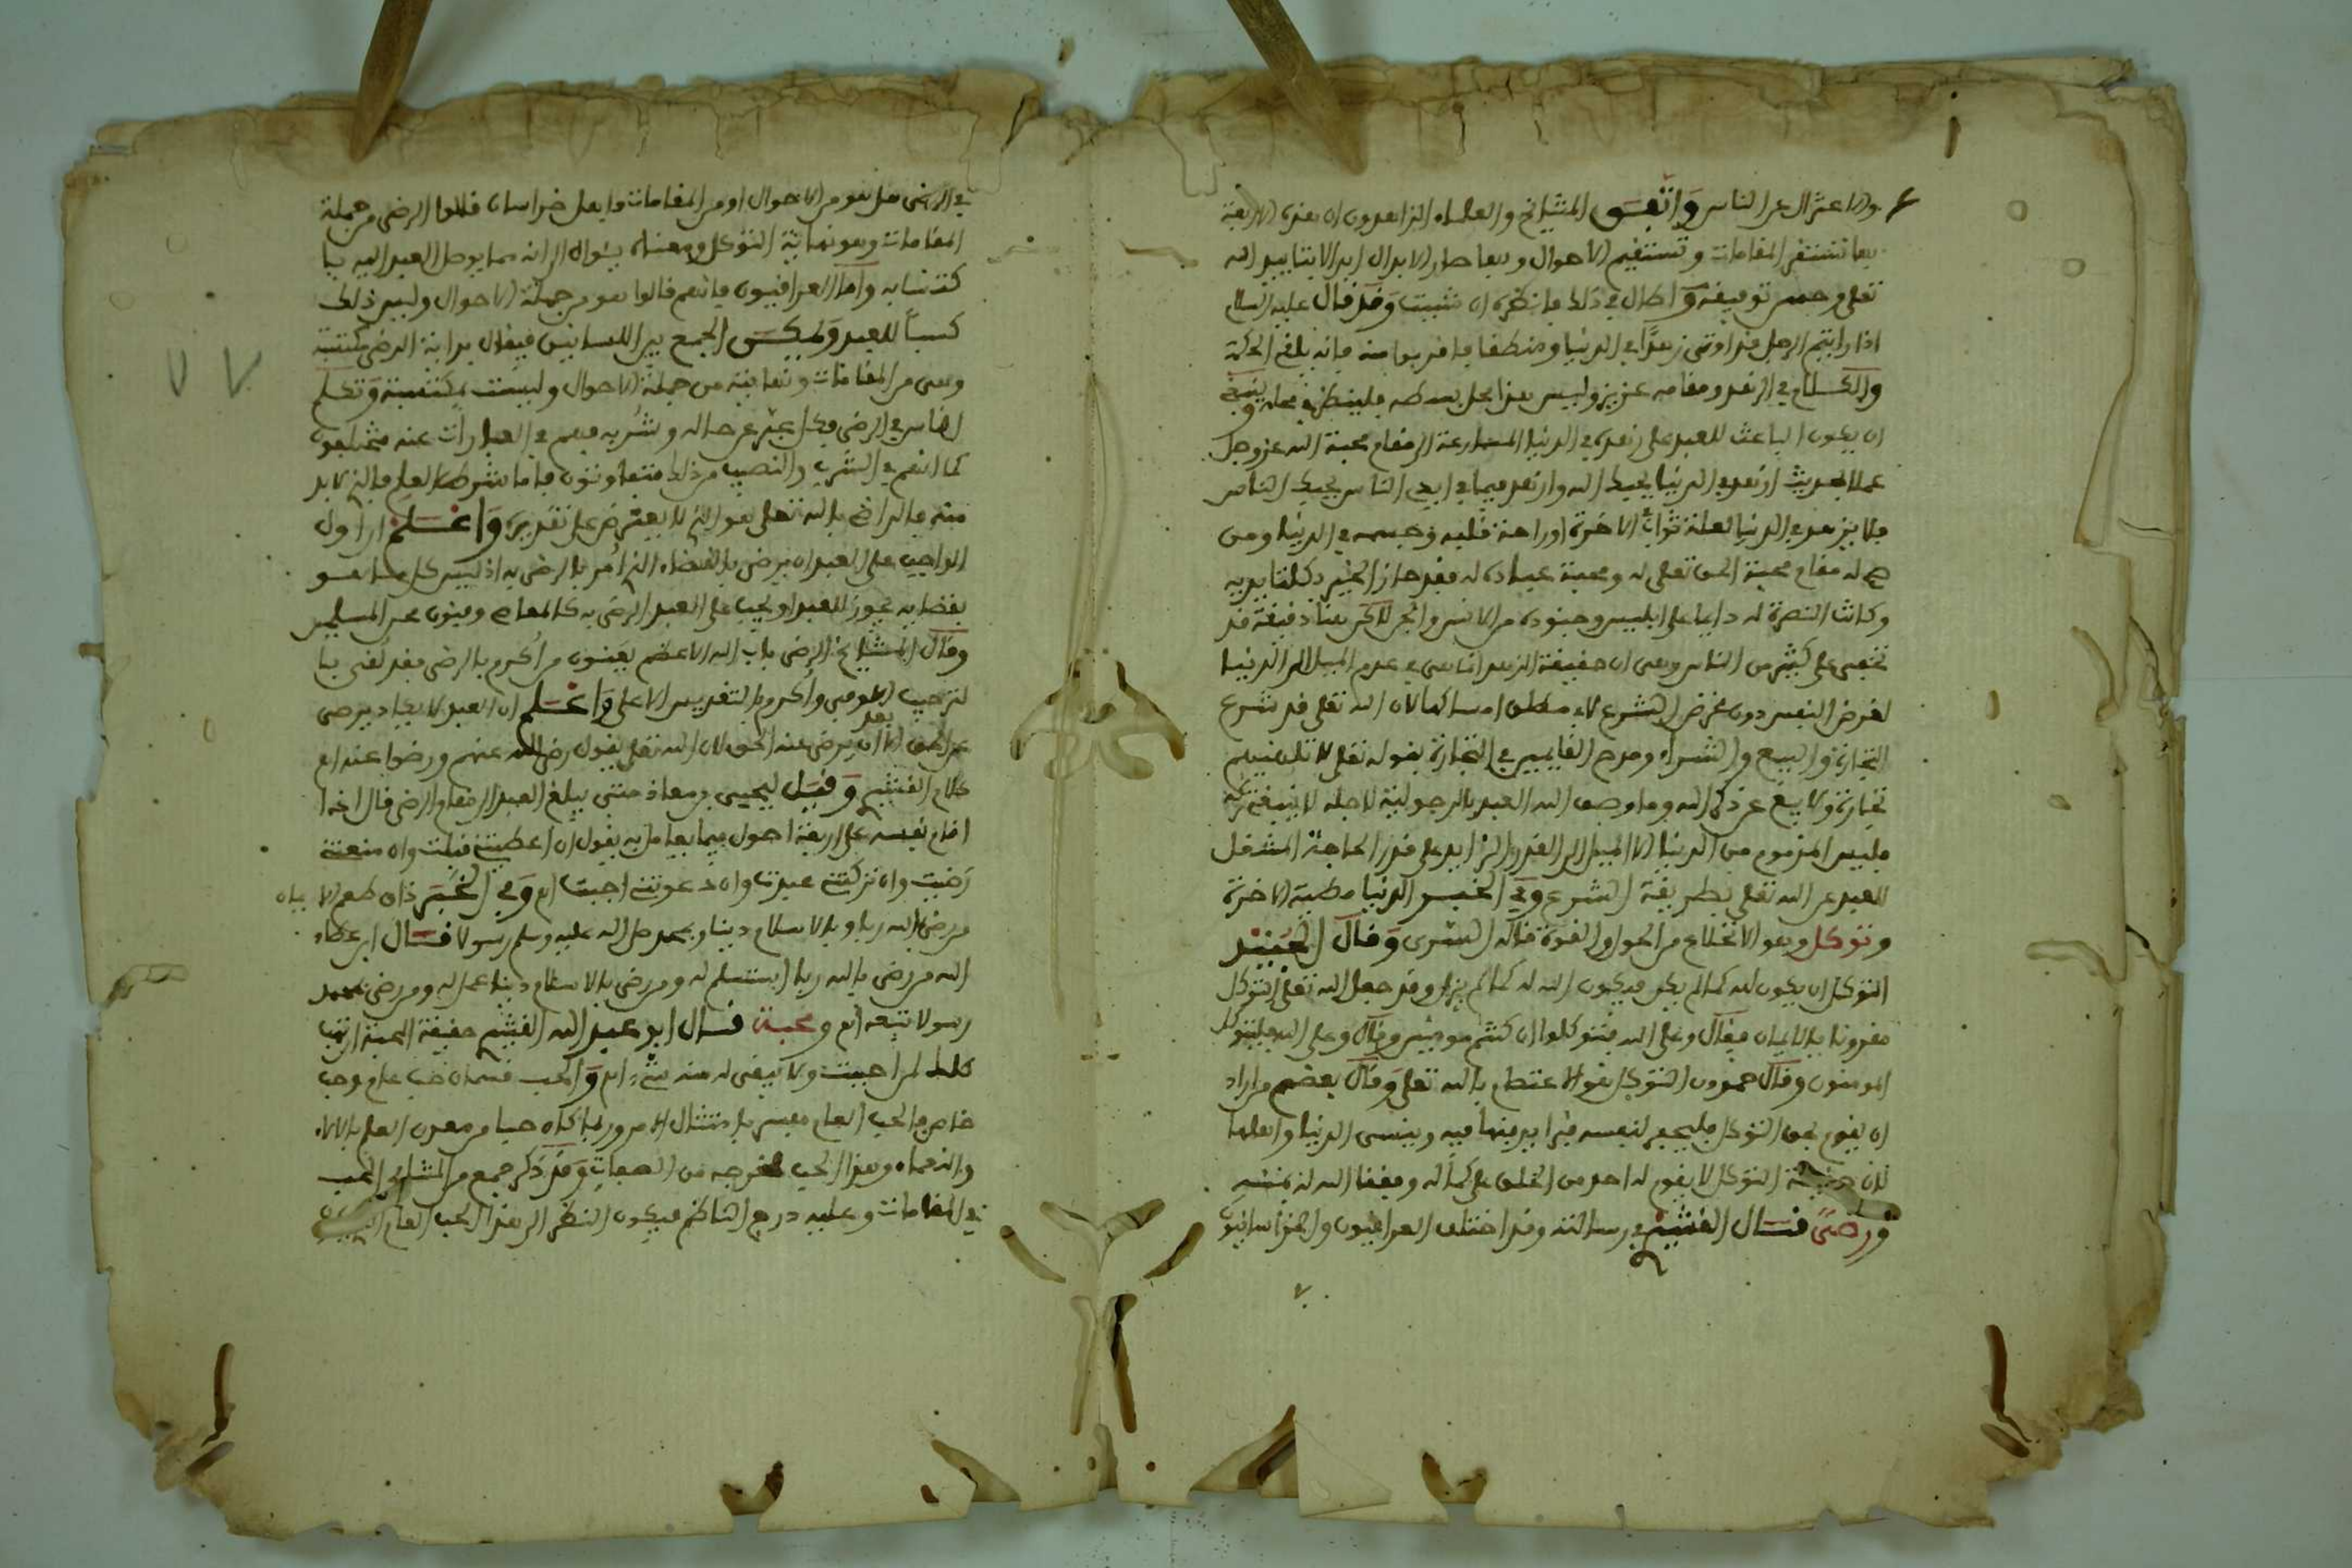 والاعتزال عن الناس واتفق المشايخ والعلماء الزاهدون ان هذه الاربعة
بها تستقر المقامات وتستقيم الاحوال وبها صار الابدال ابدالا بتاييد الله
تعلى وحسن توفيقه وقد قال عليه السلم
اذا رايتم الرجل قد اوتي زهدا في الدنيا ومنطقا فاقربوا منه فانه يلقى الحكمة
والكلام في الزهد ومقامه عزيز وليس هذا محل بسطه فلينظر في محله وينبغي
ان يكون الباعث للعبد على زهده في الدنيا المسارعة الى مقام محبة الله عز وجل
عملا بحديث ازهد في الدنيا يحبك الله وازهد فيما في ايدي الناس يحبك الناس
فلا يزهد في الدنيا لعلة ثواب الاخرة او راحة قلبه وجسمه في الدنيا ومن
صح له مقام محبة الحق تعلى له ومحبة عباده له فقد حاز الخير بكلتا يديه
وكانت النصرة له دايما على ابليس وجنوده من الانس والجن لاكن هنا دقيقة قد
تخفى على كثير من الناس وهي ان حقيقة الزهد انما هي في عدم الميل الى الدنيا
لغرض النفس دون غرض الشرع لا مطلق امساكها لان الله تعلى قد شرع
التجارة والبيع والشراء ومدح القايمين في التجارة بقوله تعلى لا تلهيهم
تجارة ولا بيع عن ذكر الله وما وصف الله العبد بالرجولية لاجله لا ينبغي تركه
فليس المذموم من الدنيا الا الميل الى القدر الزايد على قدر الحاجة المشغل
للعبد عن الله تعلى بطريقة الشرع وفي الخبر الدنيا مطية الاخرة
وتوكل وهو الانخلاع من الحول والقوة قاله السرى وقال الجنيد
التوكل ان يكون لله كما لم يكن فيكون الله له كما لم يزل وقد جعل الله تعلى التوكل
مقرونا بالايمان فقال وعلى الله فتوكلوا ان كنتم مومنين وقال وعلى الله فليتوكل
المومنون وقال حمدون التوكل هو الاعتصام بالله تعلى وقال بعضهم من اراد
ان يقوم بحق التوكل فليحفر لنفسه قبرا يدفنها فيه وينسى الدنيا واهلها
لان حقيقة التوكل لا يقوم له احد من الخلق على كماله وفقنا الله لذلك بمنه
ورضى قال القشيري في رسالته وقد اختلف العراقيون والخراسانيون
في الرضى هل هو من الاحوال او من المقامات فاهل خراسان قالوا الرضى من جملة
المقامات وهو نهاية التوكل ومعناه يئول الى انه مما يتوصل العبد اليه با
كتسابه واما العراقيون فانهم قالوا هو من جملة الاحوال وليس ذلك
كسبا للعبد ويمكن الجمع بين اللسانين فيقال بداية الرضى مكتسبة
وهي من المقامات ونهايته من جملة الاحوال وليست بمكتسبة وتكلم
الناس في الرضى فكل عبر عن حاله وشربه فهم في العبارات عنه مختلفون
كما انهم في الشرب والنصيب من ذلك متفاوتون فاما شرط العلم فالذي لا بد
منه فالراضي بالله تعلى هو الذي لا يعترض على تقديره واعلم ان اول
الواجب على العبد ان يرضى بالقضاء الذي امر بالرضى به اذ ليس كل ما هو
بقضايه يجوز للعبد او يجب على العبد الرضى به كالمعاصي وفنون محن المسلمين
وقال المشايخ الرضى باب الله الاعظم يعنون من اكرم بالرضى فقد لقي با
لترحيب الاوفى واكرم بالتقريب الاعلى واعلم ان العبد لا يكاد يرضى
عن الحق الا بعد ان يرضى عنه الحق لان الله تعلى يقول رضي الله عنهم ورضوا عنه اه
كلام القشيري وقيل ليحيى بن معاذ متى يبلغ العبد الى مقام الرضى قال اذا
اقام نفسه على اربعة اصول فيما يعامل به يقول ان اعطيتني قبلت وان منعتني
رضيت وان تركتني عبدت وان دعوتني اجبت اه وفي الخبر ذاق طعم الايمان
من رضي بالله ربا وبالاسلام دينا وبمحمد صلى الله عليه وسلم رسولا قال ابن عطاء
الله من رضي بالله ربا استسلم له ومن رضي بالاسلام دينا عمل له ومن رضي بمحمد
رسولا تبعه اه ومحبة قال ابو عبد الله القرشي حقيقة المحبة ان تهب
كلك لمن احببت ولا يبقى له منك شيء اه والحب قسمان حب عام وحب
خاص فالحب العام مفسر بامتثال الامر وربما كان حبا من معدن العلم بالالاء
والنعماء وهذا الحب مخرجه من الصفات وقد ذكر جمع من المشايخ الحب
في المقامات وعليه درج الناظم فيكون النظر الى هذا الحب العام